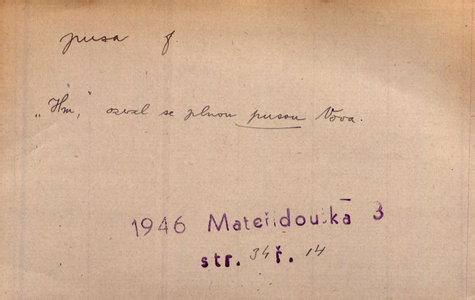 pusa f.
„Hm," ozval se plnou pusou Vova.
1946 Mateřídouška 3
str. 34 ř. 14